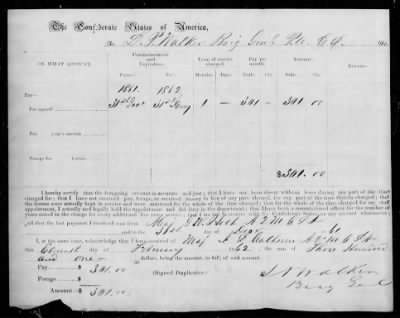 The Confederate States of America,
To L. P. Walker Brig Genl P. A. C. S. Dr.
ON WHAT ACCOUNT.
Commencement and Expiration.
Term of service charged.
Pay per month.
Amount.
Remarks.
From— To— Months. Days. Dolls. Cts. Dolls. Cts.
Pay— 1861 1862
For myself 31st Dec 31st Jany 1 — 301 — 301 00
$301.00
I hereby certify that the foregoing account is accurate and just; that I have not been absent without leave during any part of the time
charged for; that I have not received pay, forage, or received money in lieu of any part thereof, for any part of the time therein charged; that
the horses were actually kept in service and were mustered for the whole of the time charged; that for the whole of the time charged for my staff
appointment, I actually and legally held the appointment and did duty in the department; that I have been a commissioned officer for the number of
years stated in the charge for every additional five years' service; that I am not in arrears with the Confederate States, on any account whatsoever;
and that the last payment I received was from Maj
and to the 31st day of
I, at the same time, acknowledge that I have received of Maj
this day of February 62, the sum of Three Hundred
and one — dollars, being the amount, in full, of said account.
Pay— $301.00
Forage—
Amount— $301.00
(Signed Duplicates)
L P Walker
Brig Genl